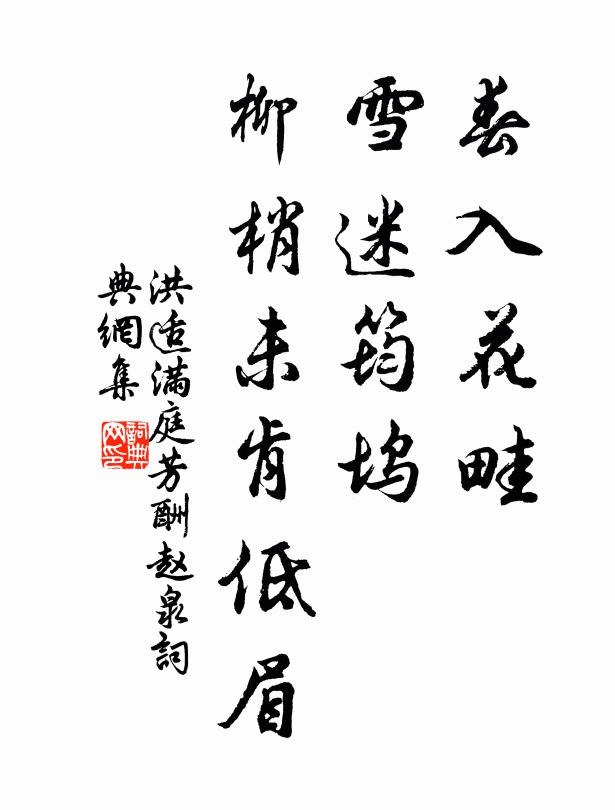 春入花畦
雪迷筠坞
柳梢未肯低眉
洪适满庭芳酬赵泉詞
典網集
詞典网印